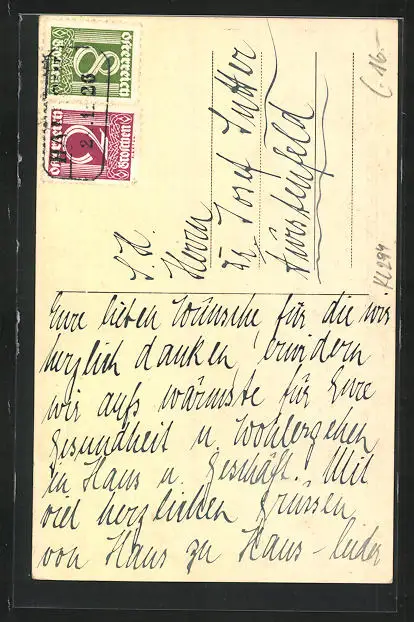 Österreich
8
Groschen
Österreich
2
Groschen
26
S. H.
Herrn
Josef Sutter
Fürstenfeld
(. 16.-
Eure lieben Wünsche, für die wir
herzlich danken, erwidern
wir aufs wärmste für Eure
Gesundheit u. Wohlergehen
in Haus u. Geschäft. Mit
viel herzlichen Grüssen
von Haus zu Haus - leider